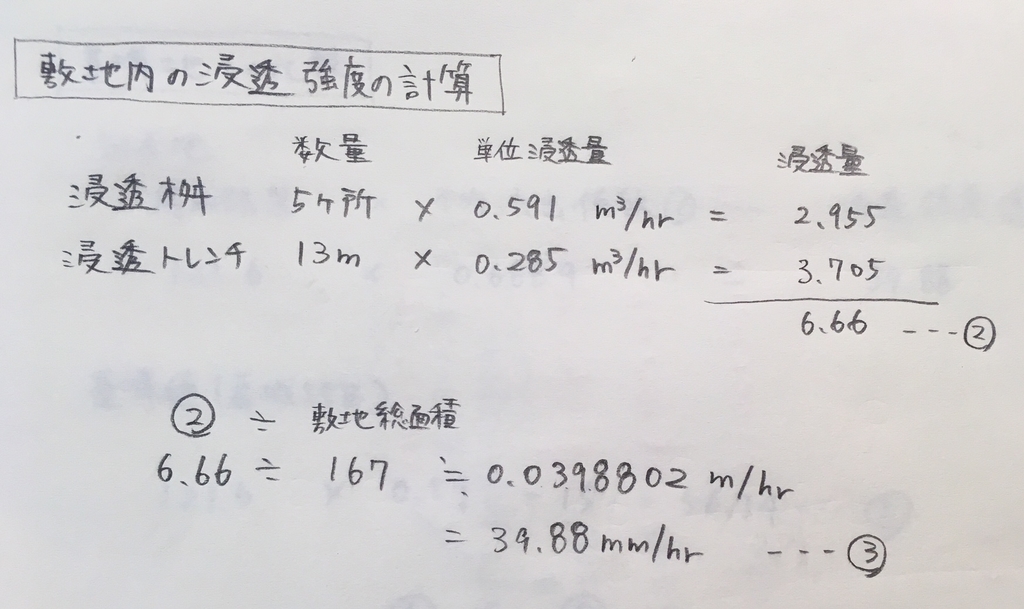 敷地内の浸透強度の計算
数量 単位浸透量 浸透量
浸透桝 5ヶ所 × 0.591 m³/hr = 2.955
浸透トレンチ 13m × 0.285 m³/hr = 3.705
6.66 ---②
② ÷ 敷地総面積
6.66 ÷ 167 ≒ 0.0398802 m/hr
= 39.88 mm/hr ---③